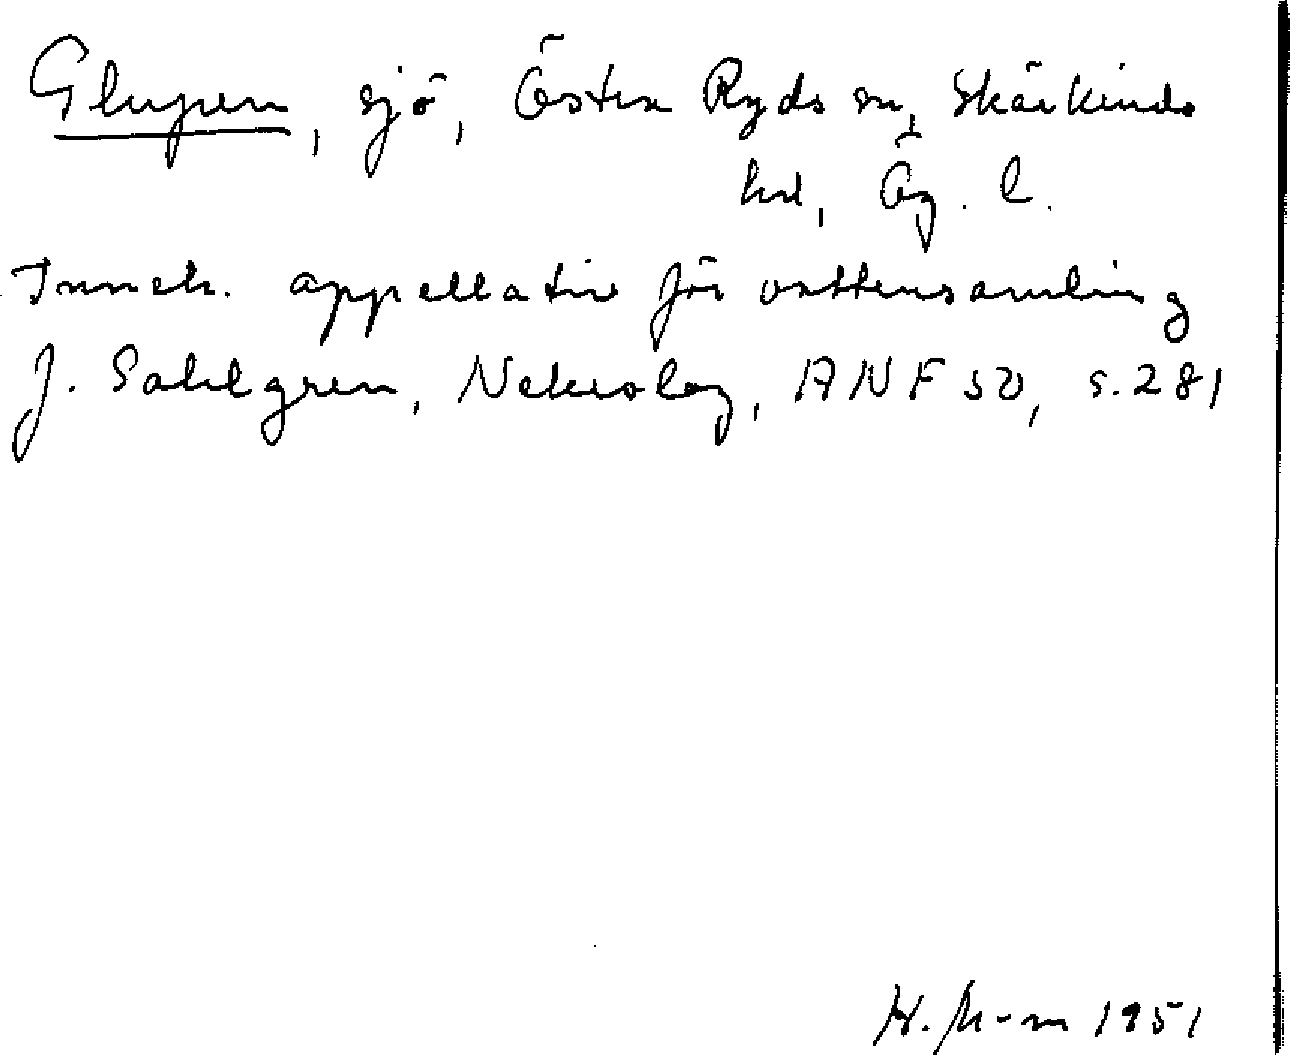 Glupen, sjö, Östra Ryds sn, Skärkinds
hd, Ög. l.
Inneh. appellativ för vattensamling
J. Sahlgren, Nekrolog, ANF 50, s. 281
1951